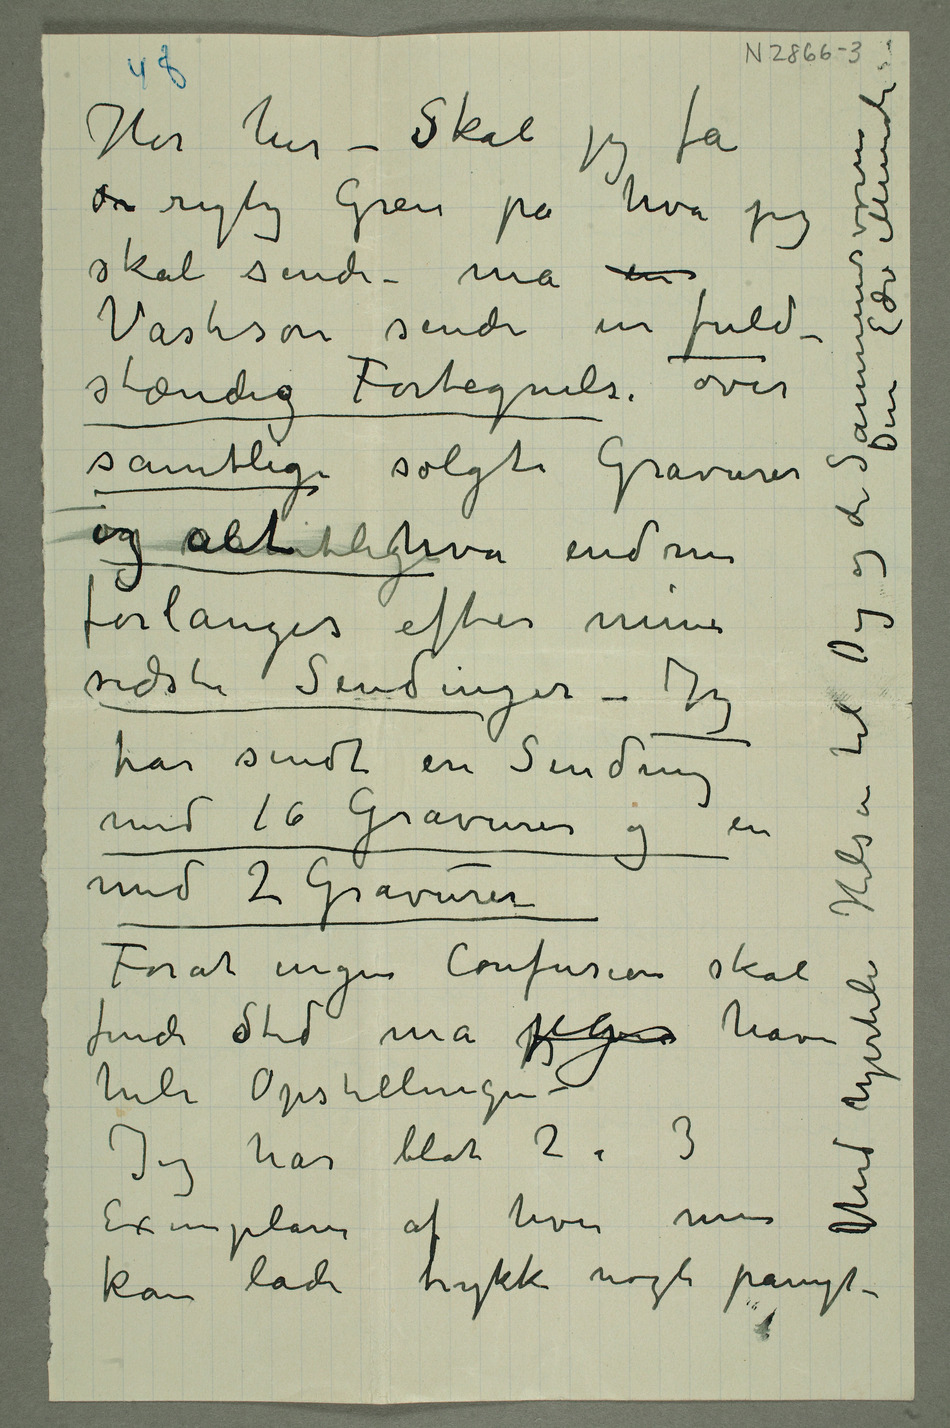 48
N 2866-3
Hør her – Skal jeg få
en rigtig Grei på hva jeg
skal sende – må en
Vasteson sende en fuld-
stændig Fortegnelse over
samtlige solgte Gravurer
og alt hva endnu
forlanges efter mine
sidste Sendinger – Jeg
har sendt en Sending
med 16 Gravurer og en
med 2 Gravurer
Forat ingen Confusion skal
finde Sted må jeg have
hele Opstillingen –
Jeg har blot 2 a 3
Exemplarer af hver men
kan lade trykke nogle pånyt –
Med hjertelig Hilsen til Dig og de Sammensvorne
Din Edv Munch